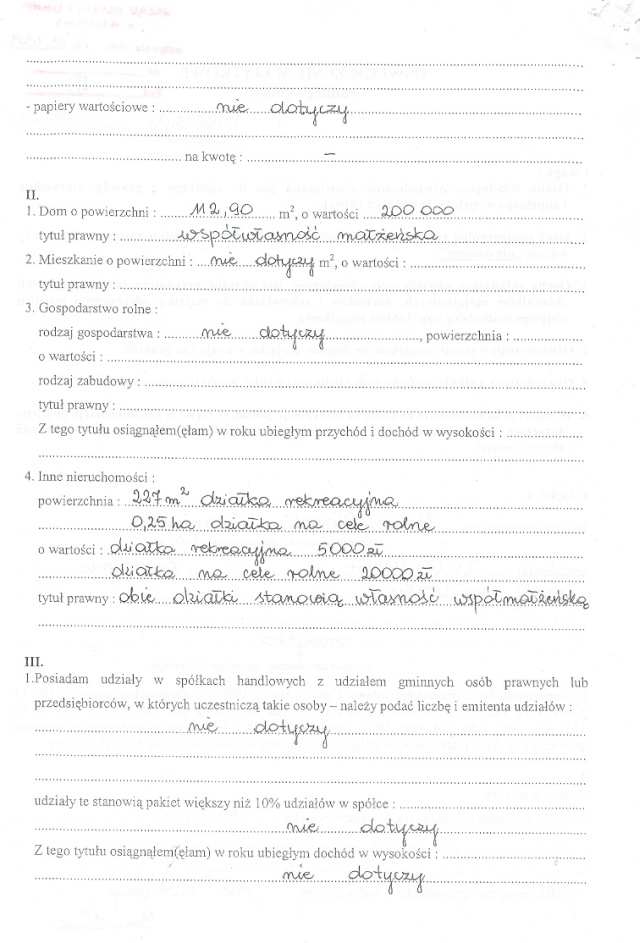 - papiery wartościowe : nie dotyczy
na kwotę : —
II.
1. Dom o powierzchni : 112,90 m², o wartości 200 000
tytuł prawny : współwłasność małżeńska
2. Mieszkanie o powierzchni : nie dotyczy m², o wartości :
tytuł prawny :
3. Gospodarstwo rolne :
rodzaj gospodarstwa : nie dotyczy, powierzchnia :
o wartości :
rodzaj zabudowy :
tytuł prawny :
Z tego tytułu osiągnąłem(ęłam) w roku ubiegłym przychód i dochód w wysokości :
4. Inne nieruchomości :
powierzchnia : 227 m² działka rekreacyjna
0,25 ha działka na cele rolne
o wartości : działka rekreacyjna 5000 zł
działka na cele rolne 20000 zł
tytuł prawny : obie działki stanowią własność współmałżeńską
III.
1.Posiadam udziały w spółkach handlowych z udziałem gminnych osób prawnych lub
przedsiębiorców, w których uczestniczą takie osoby – należy podać liczbę i emitenta udziałów :
nie dotyczy
udziały te stanowią pakiet większy niż 10% udziałów w spółce :
nie dotyczy
Z tego tytułu osiągnąłem(ęłam) w roku ubiegłym dochód w wysokości :
nie dotyczy